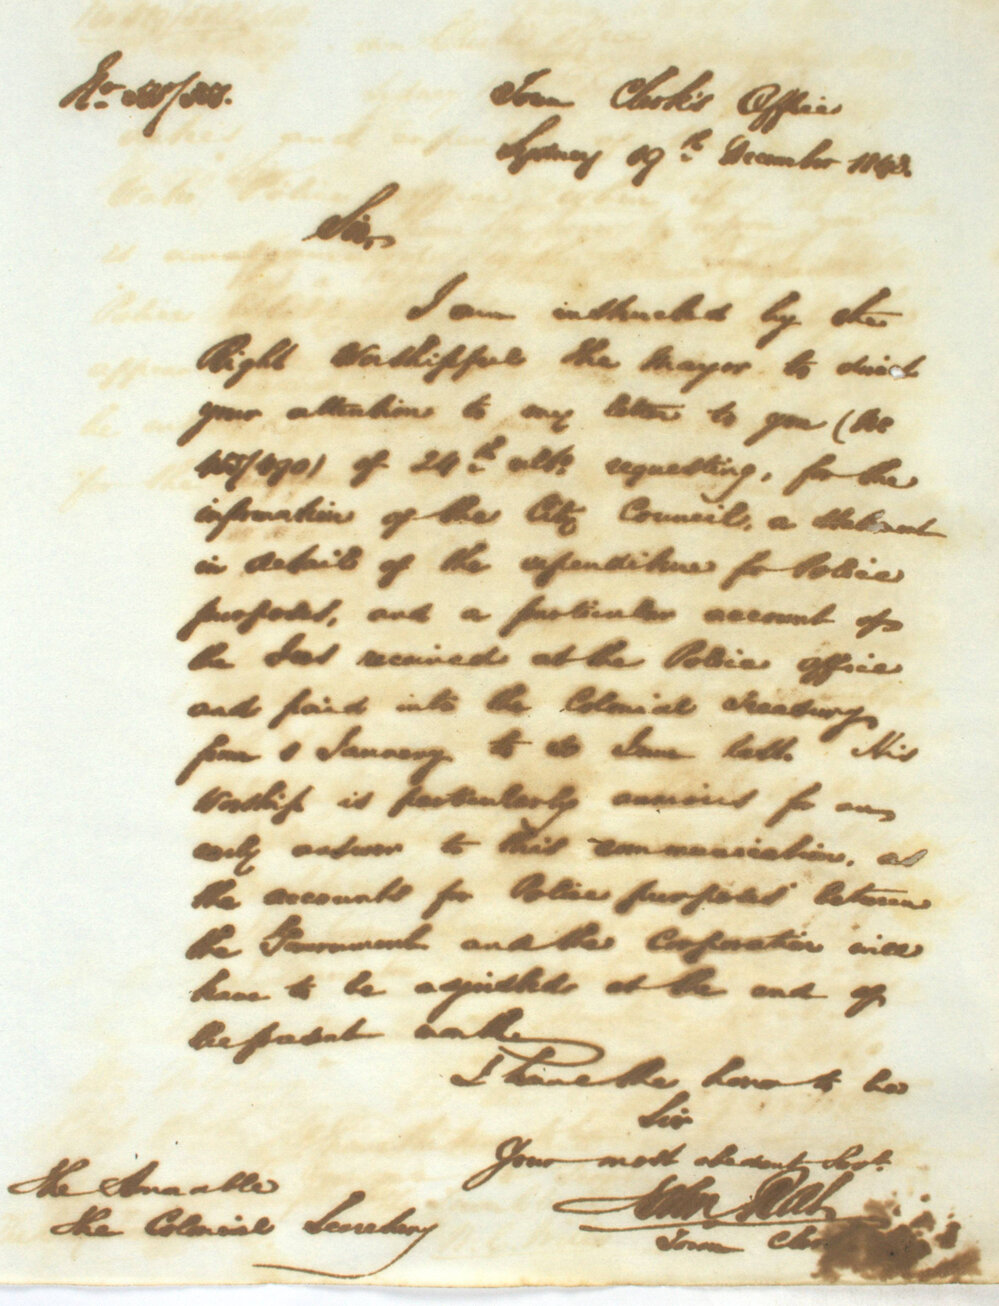 Town Clerk's Office
Sydney 19th December 1843.
Sir,
I am instructed by the
Right Worshipful the Mayor to direct
your attention to my letter to you (No
of 24th ulto requesting, for the
information of the City Council, a statement
in detail of the expenditure for Police
purposes, and a particular account of
the Fees received at the Police Office
and paid into the Colonial Treasury
from 1 January to June last. His
Worship is particularly anxious for an
early answer to this communication, as
the accounts for Police purposes between
the Government and the Corporation will
have to be adjusted at the end of
the present month.
I have the honor to be
Sir
Your most obedient Servt.
John
Town Clerk
The Honorable
The Colonial Secretary